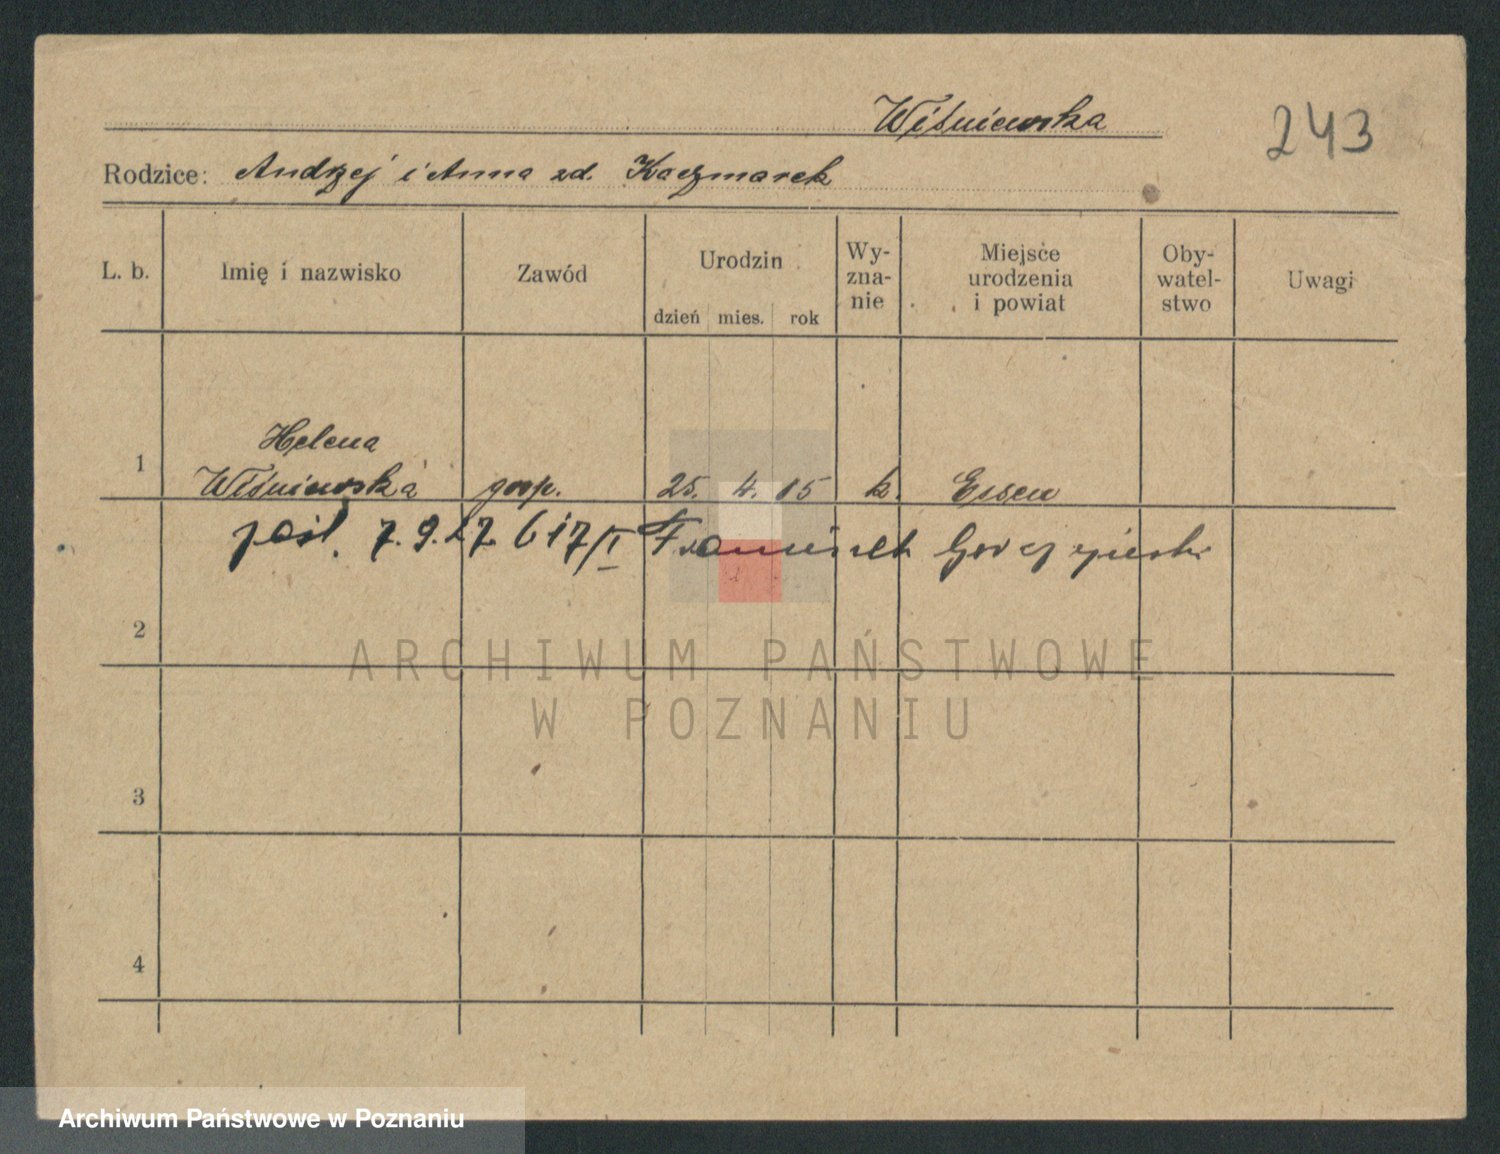 Wiśniewska
243
Rodzice: Andrzej i Anna zd. Kaczmarek
L. b. Imię i nazwisko Zawód Urodzin dzień mies. rok Wy-zna-nie Miejsce urodzenia i powiat Oby-watel-stwo Uwagi
Helena
1 Wiśniewska gosp. 25. 4. 15 k. Essen
7.9.27 617/I Franciszek
2
ARCHIWUM PAŃSTWOWE
W POZNANIU
3
4
Archiwum Państwowe w Poznaniu